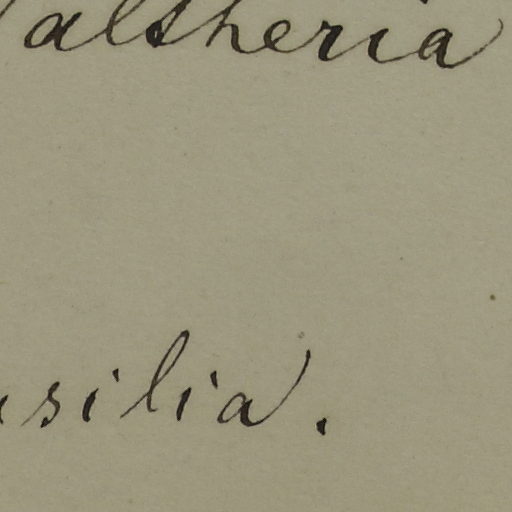 altheria
silia.